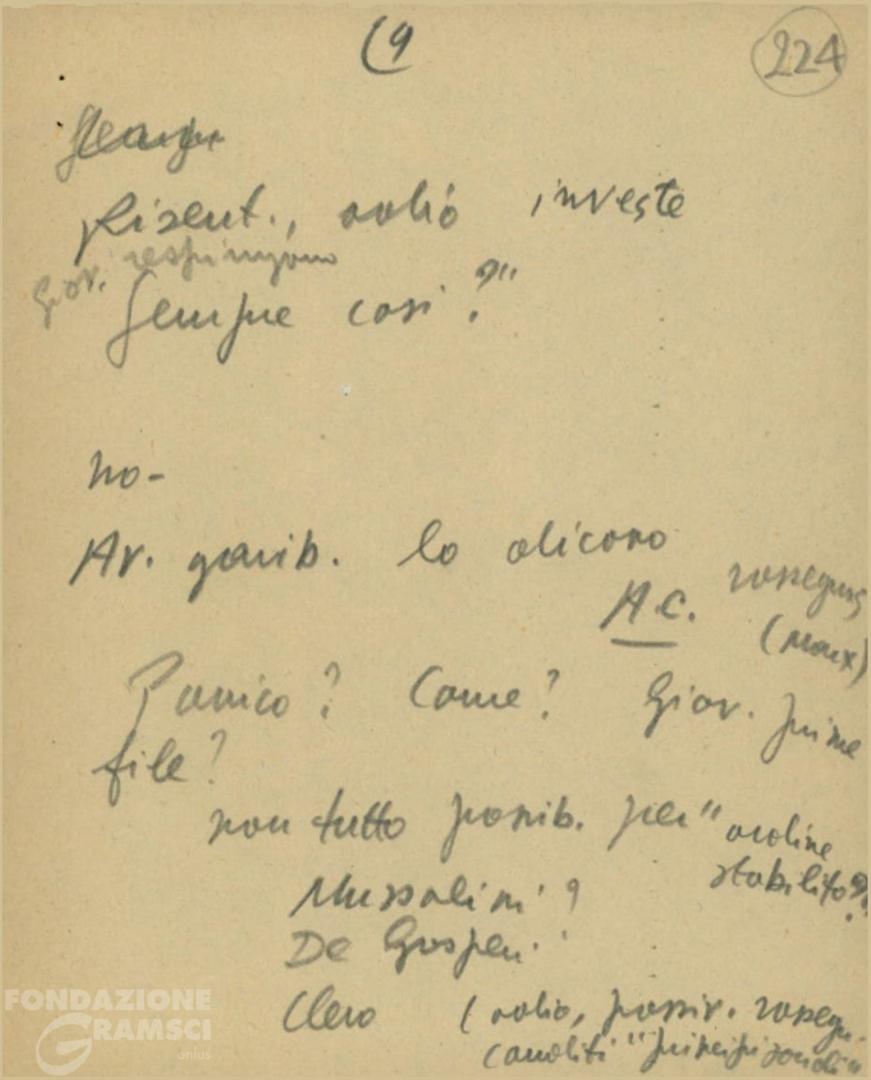 (9
224
Risent., odio investe
Giov. respingono
Sempre così?"
no-
Av. garib. lo dicono
A.C. rassegnaz
(Marx)
Panico? Come? Giov. prime
file?
non tutto possib. per "ordine
stabilito"?
Mussolini?
De Gasperi
Clero (odio, passiv. rassegn.
FONDAZIONE
GRAMSCI
onlus